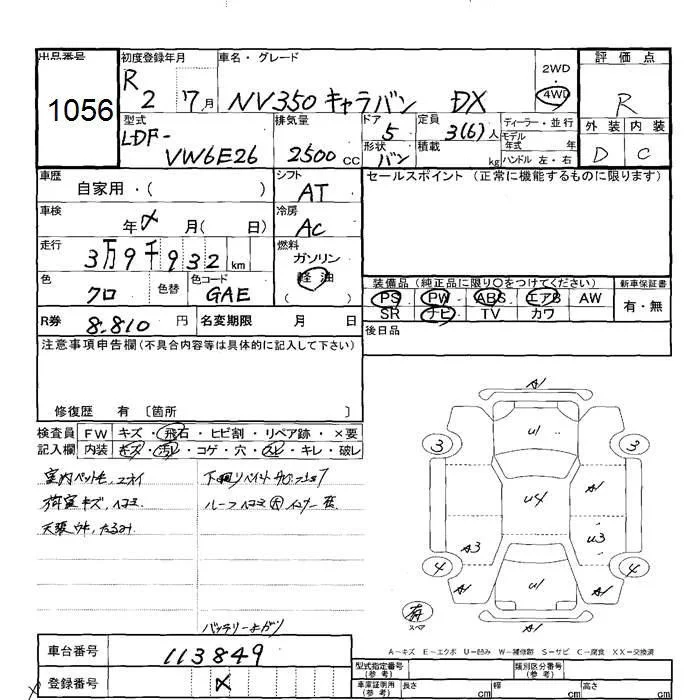 出品番号
1056
初度登録年月
R2 7月
車名・グレード
NV350 キャラバン DX
2WD
・
4WD
評価点
R
外装 内装
D C
型式
LDF-
VW6E26
排気量
2500cc
ドア
5
形状
バン
定員
3(6)人
積載
kg
ディーラー・並行
モデル
年式 年
ハンドル 左・右
車歴
自家用・( )
シフト
AT
セールスポイント(正常に機能するものに限ります)
車検
年 月( 日)
冷房
AC
走行
3万9千932km
燃料
ガソリン
軽油
( )
色
クロ
色替
色コード
GAE
装備品(純正品に限り○をつけてください)
新車保証書
PS PW ABS エアB AW
SR ナビ TV カワ
有・無
R券
8.810円
名変期限 月 日
後日品
注意事項申告欄(不具合内容等は具体的に記入して下さい)
修復歴 有 〔箇所 〕
検査員 FW キズ・飛石・ヒビ割・リペア跡・×要
記入欄 内装 キズ・汚レ・コゲ・穴・スレ・キレ・破レ
荷室キズ、ヘコミ
天張ウキ、たるみ
A1
U1
3
3
U4
A1
A3
U3
4
4
A1
U1
A1
A1
有
スペア
バッテリーあがり
A-キズ E-エクボ U-凹み W-補修跡 S-サビ C-腐食 XX-交換済
車台番号
113849
登録番号
型式指定番号
(参考)
類別区分番号
(参考)
車庫証明用
(参考)
長さ cm 幅 cm 高さ cm